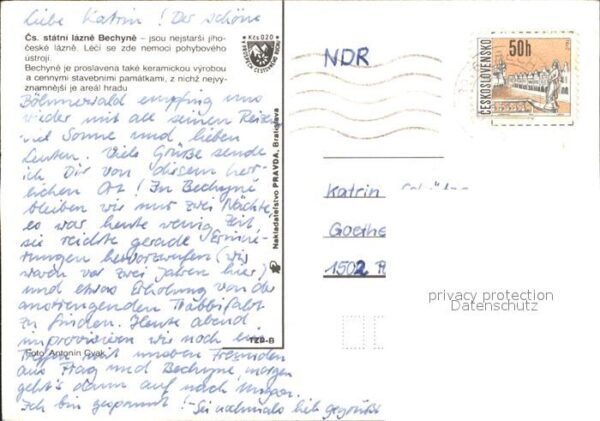 Liebe Katrin! Der schöne
Čs. státní lázně Bechyně – jsou nejstarší jiho-
české lázně. Léčí se zde nemoci pohybového
ústrojí.
Bechyně je proslavena také keramickou výrobou
a cennými stavebními památkami, z nichž nejvý-
znamnější je areál hradu
Böhmerwald empfing uns
wieder mit all seinen Reizen,
viel Sonne und lieben
Leuten. Viele Grüße sende
ich Dir von diesem herr-
lichen Ort! In Bechyně
bleiben wir nur zwei Nächte,
es war heute wenig Zeit
sie reichte gerade Erinne-
rungen hervorzurufen (wir
waren vor zwei Jahren hier)
und etwas Erholung von der
anstrengenden Trabbifahrt
zu finden. Heute abend
improvisieren wir noch ein
Foto: Antonín
Treffen mit unseren Freunden
aus Prag und Bechyně, morgen
geht's dann auf nach
Ich bin gespannt! – Sei nochmals lieb gegrüßt
Kčs 0,20
Nakladatelství PRAVDA, Bratislava
TZP-B
NDR
ČESKOSLOVENSKO
50h
Katrin
Goethe
1502 P
privacy protection
Datenschutz